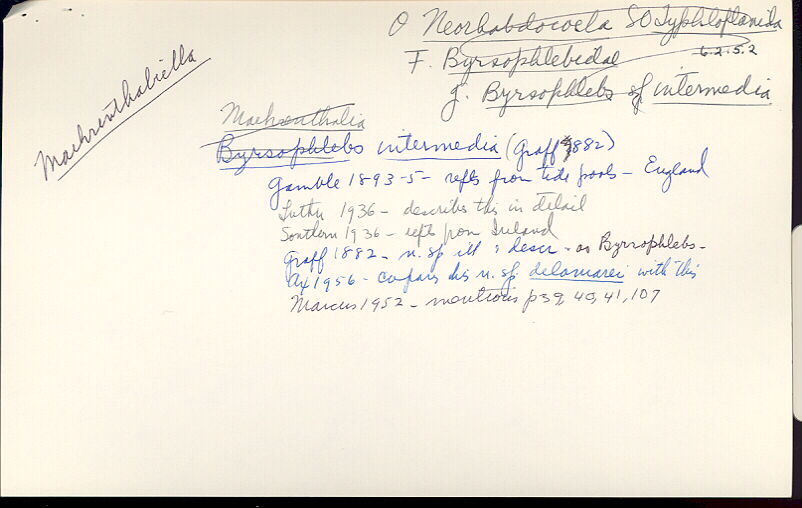 O Neorhabdocoela SO Typhloplanida
F. Byrsophlebidae 6.2.5.2
g. Byrsophlebs sp intermedia
Maehrenthaliella
Maehrenthalia
Byrsophlebs intermedia (Graff 1882)
Gamble 1893-5 - repts from tide pools - England
Luther 1936 - describes this in detail
Southern 1936 - repts from Ireland
Graff 1882 - n. sp ill & descr - as Byrsophlebs -
Ax 1956 - compars his n. sp delamarei with this
Marcus 1952 - mentions p 39, 40, 41, 107